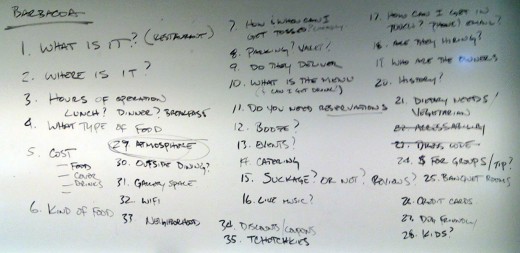 BARBACOA
1. WHAT IS IT? (RESTAURANT)
2. WHERE IS IT?
3. HOURS OF OPERATION
LUNCH? DINNER? BREAKFAST
4. WHAT TYPE OF FOOD
5. COST
— FOOD
— COVER
— DRINKS
6. KIND OF FOOD
29. ATMOSPHERE
30. OUTSIDE DINING?
31. GALLERY SPACE
32. WIFI
33. NEIGHBORHOOD
7. HOW & WHEN CAN I
GET
8. PARKING? VALET?
9. DO THEY DELIVER
10. WHAT IS THE MENU
(CAN I GET
11. DO YOU NEED RESERVATIONS
12. BOOZE?
13. EVENTS?
14. CATERING
15. SUCKAGE? OR NOT? REVIEWS?
16. LIVE MUSIC?
34. DISCOUNTS/COUPONS
35. TCHOTCHKIES
17. HOW CAN I GET IN
TOUCH? PHONE? EMAIL?
18. ARE THEY HIRING?
19. WHO ARE THE OWNERS
20. HISTORY?
21. DIETARY NEEDS/
VEGETARIAN
22. ACCESSABILITY
23. DRESS CODE
24. $ FOR GROUPS/TIP?
25. BANQUET ROOMS
26. CREDIT CARDS
27. DOG FRIENDLY
28. KIDS?